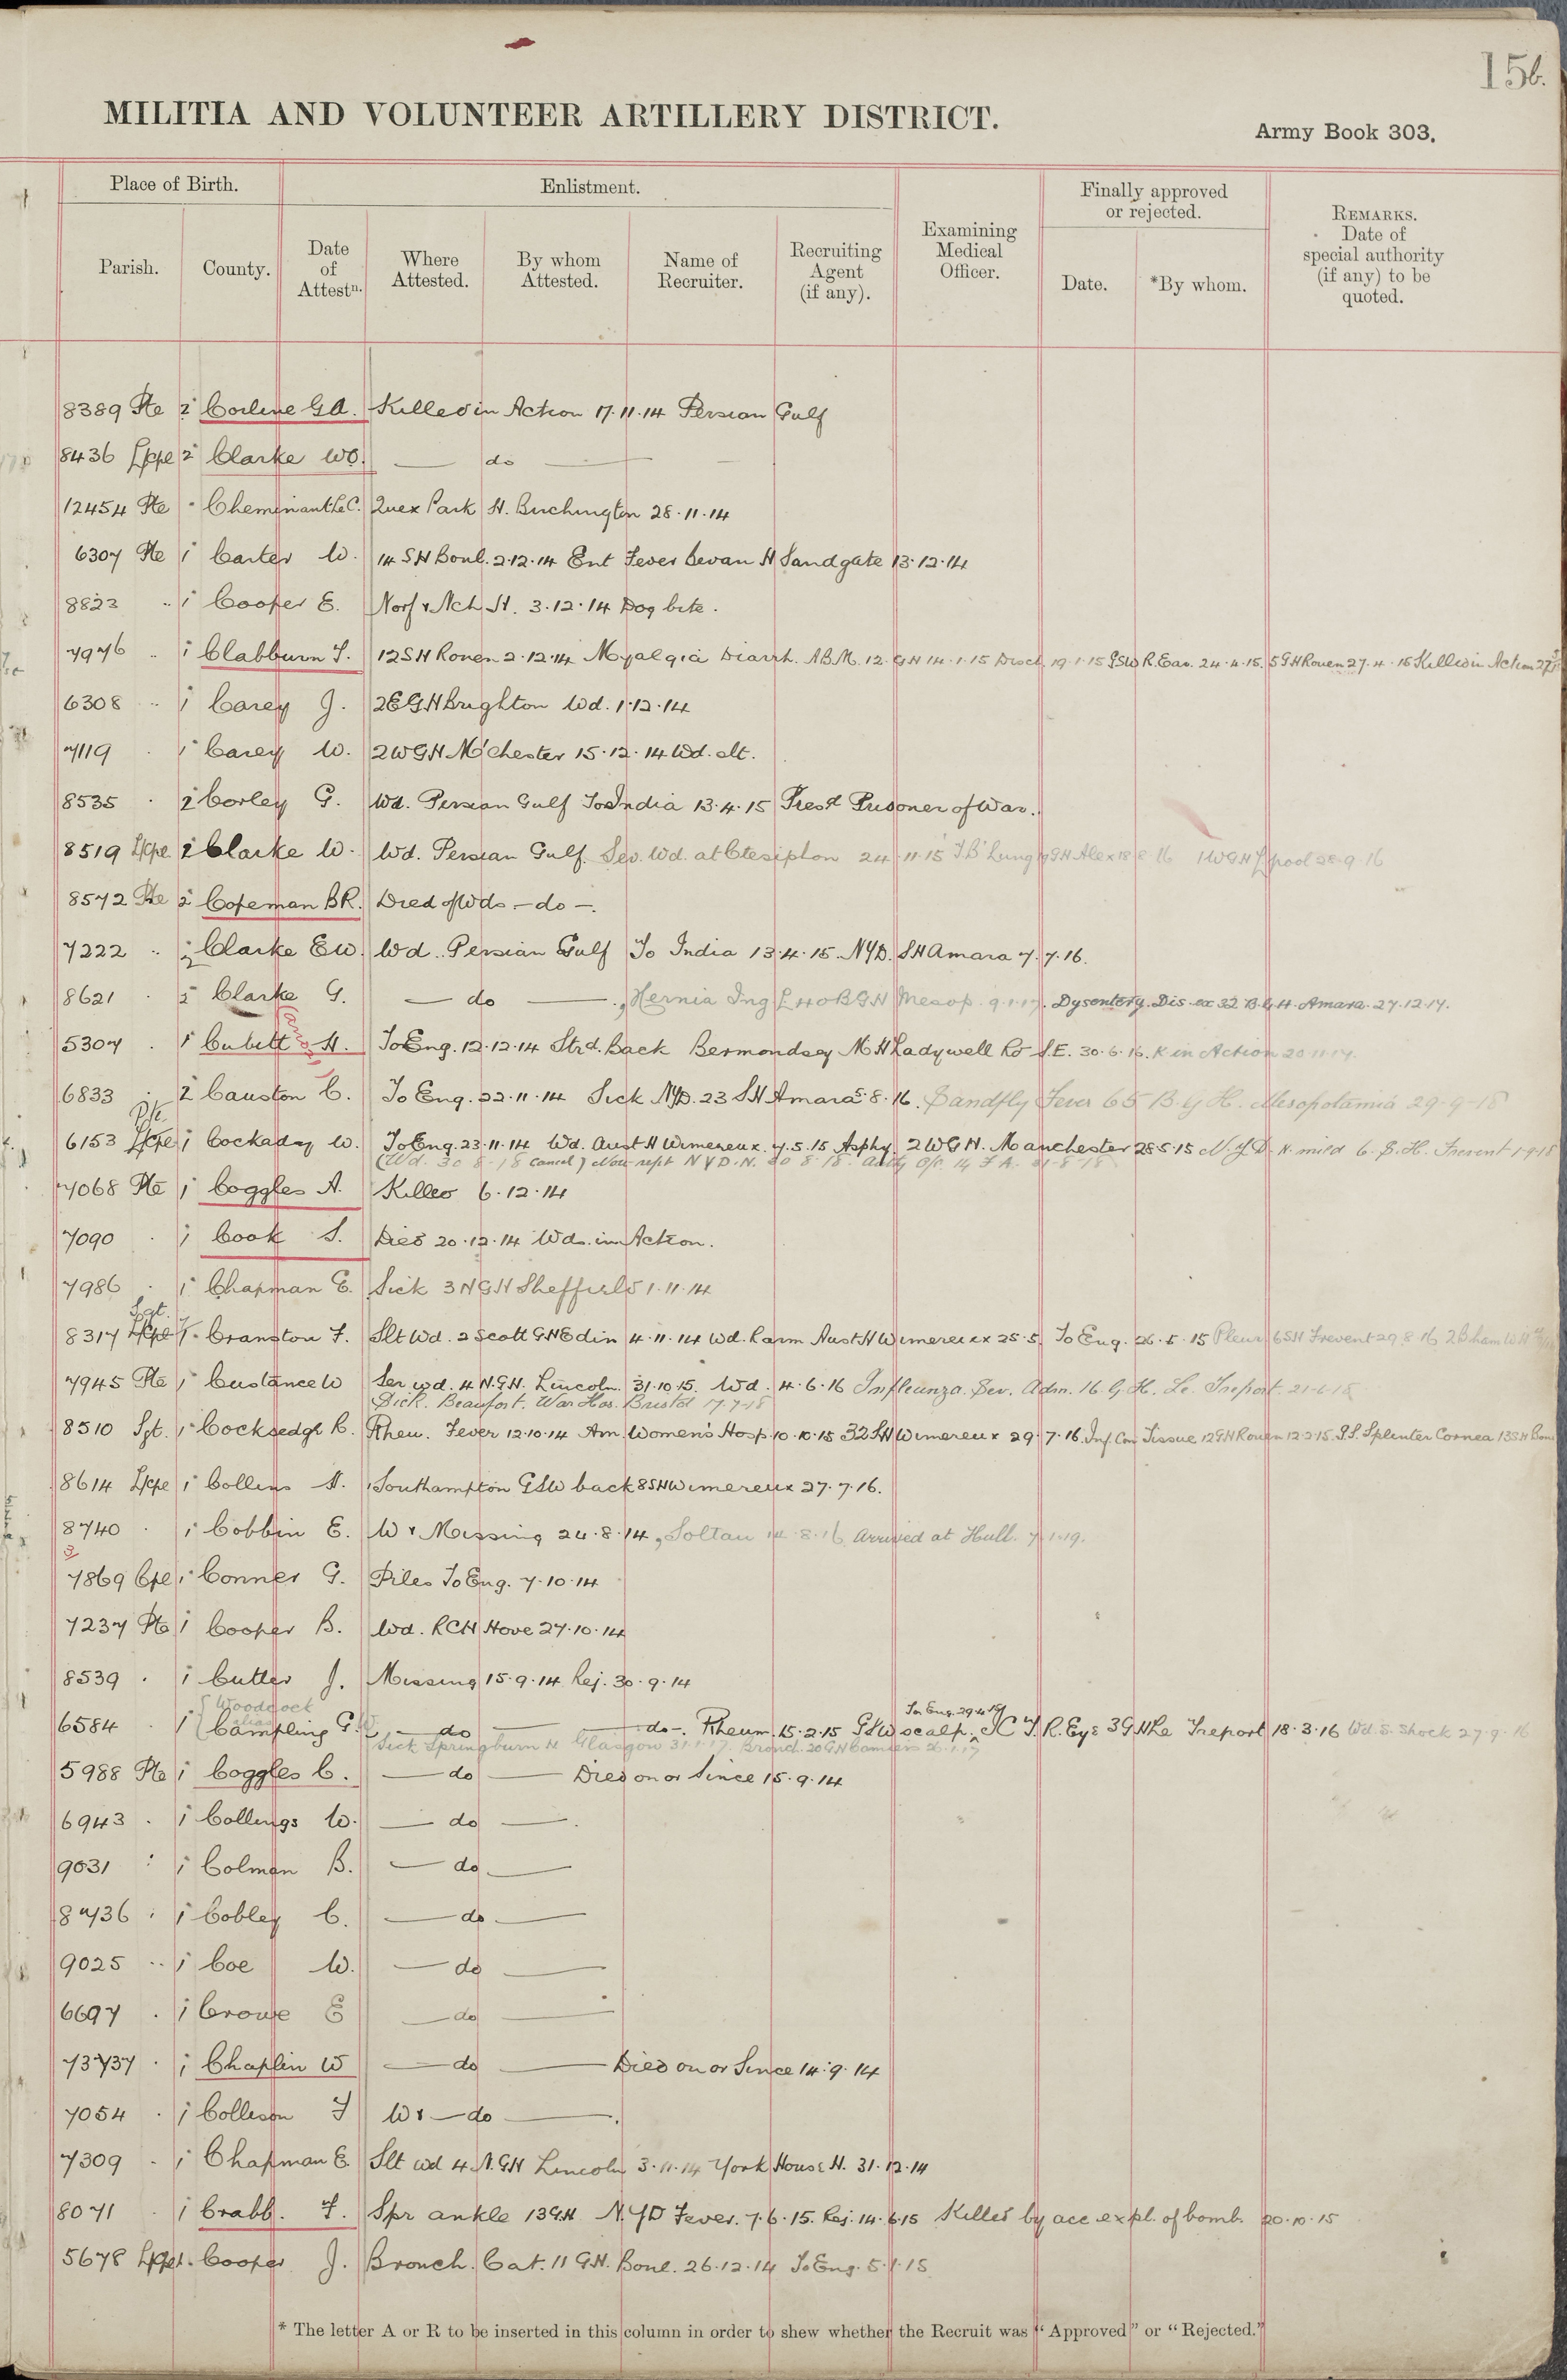 15b.
MILITIA AND VOLUNTEER ARTILLERY DISTRICT.
Army Book 303.
Place of Birth.
Enlistment.
Finally approved or rejected.
Parish.
County.
Date of Attestn.
Where Attested.
By whom Attested.
Name of Recruiter.
Recruiting Agent (if any).
Examining Medical Officer.
Date.
*By whom.
REMARKS. Date of special authority (if any) to be quoted.
8389 Pte 2 Corline G.A. Killed in Action 17.11.14 Persian Gulf
8436 L/Cpl 2 Clarke WO. — do —
12454 Pte " Cheminant Le C. Quex Park H. Birchington 28.11.14
6307 Pte 1 Carter W. 14 SH Boul. 2.12.14 Ent Fever Bevan H Sandgate 13.12.14
8823 .. 1 Cooper E. Norf & Nch H. 3.12.14 Dog bite.
7976 .. 1 Clabburn F. 12SH Rouen 2.12.14 Myalgia Diarrh. ABM. 12. GH 14.1.15 Disch. 19.1.15 GSW R.Ear. 24.4.15. 5GH Rouen 27.4.15 Killed in Action
6308 .. 1 Carey J. 2EGH Brighton Wd. 1.12.14
7119 . 1 Carey W. 2WGH M'chester 15.12.14 Wd. slt.
8535 . 2 Corley G. Wd. Persian Gulf To India 13.4.15 Presd Prisoner of War.
8519 L/Cpl 2 Clarke W. Wd. Persian Gulf. Sev. Wd. at Ctesiphon 24.11.15 T.B. Lung GH Alex 18.8.16 1WGH L'pool 28.9.16
8572 Pte 2 Copeman BR. Died of Wds — do —.
7222 .. 2 Clarke EW. Wd. Persian Gulf To India 13.4.15. NYD. SH Amara 7.7.16.
8621 . 2 Clarke G. — do — ., Hernia Ing L 40BGH Mesop. 9.1.17. Dysentery. Dis. ex 32 B.G.H. Amara. 27.12.17.
5307 . 1 Cubitt H. To Eng. 12.12.14 Strd. Back Bermondsey M H Ladywell Rd S.E. 30.6.16. K in Action 20.11.17.
6833 . 2 Causton C. To Eng. 22.11.14 Sick NYD. 23 SH Amara 5.8.16. Sandfly Fever 65 B.G.H. Mesopotamia 29-9-18
Pte
6153 L/Cpl 1 Cockaday W. To Eng. 23.11.14 Wd. Aust H Wimereux. 7.5.15 Asphy. 2WGH. Manchester 28.5.15 N.Y.D. N. mild 6. S.H. Frevent 1-9-18
(Wd. 30 8-18 Cancel) Now rept NYD.N. 30 8-18. Adtg O/c 14 F A. 31-8-18
7068 Pte 1 Coggles A. Killed 6.12.14
7090 . 1 Cook S. Died 20.12.14 Wds. in Action.
7986 . 1 Chapman E. Sick 3NGH Sheffield 1.11.14
Sgt.
8317 L/Cpl 1 Cranston F. Slt Wd. 2 Scott GH Edin 4.11.14 Wd. L arm Aust H Wimereux 25.5. To Eng. 26.5.15 Pleur 6SH Frevent 29.8.16 2B'ham WH
7945 Pte 1 Custance W Sev wd. 4 N.G.H. Lincoln. 31.10.15. Wd. 4.6.16 Influenza. Sev. Adm. 16 G.H. Le. Treport 21-6-18
Sick. Beaufort. War Hos. Bristol 17.7-18
8510 Sgt. 1 Cocksedge C. Rheu. Fever 12.10.14 Am. Women's Hosp 10.10.15 32SH Wimereux 29.7.16. Inf Con Tissue 12GH Rouen 12.2.15. G.S. Splinter Cornea 13SH Boul
8614 L/Cpl 1 Collins H. Southampton GSW back 8SH Wimereux 27.7.16.
8740 . 1 Cobbin E. W & Missing 24.8.14, Soltau 14.8.16 Arrived at Hull. 7.1.19.
3/
7869 Cpl 1 Conner G. Piles To Eng. 7.10.14
7237 Pte 1 Cooper B. Wd. RCH Hove 27.10.14
8539 . 1 Cutler J. Missing 15.9.14 Rej. 30.9.14
Woodcock
alias
To Eng. 29.4.15
6584 . 1 Campling G. — do — — do —. Rheum. 15.2.15 GSW scalp. IC T. R. Eye 3GH Le Treport 18.3.16 Wd. S. Shock 27.9.16
Sick Springburn H Glasgow 31.1.17. Bronch. 20GH Camiers 26.1.17
5988 Pte 1 Coggles C. — do — Died on or Since 15.9.14
6943 . 1 Collings W. — do —.
9031 : 1 Colman B. — do —
8736 : 1 Cobley C. — do —
9025 .. 1 Coe W. — do —
6697 . 1 Crowe E — do —
7373 . 1 Chaplin W — do — Died on or Since 14.9.14
7054 . 1 Colleson F W & — do —.
7309 . 1 Chapman E. Slt wd 4.N.GH Lincoln 3.11.14 York House H. 31.12.14
8071 . 1 Crabb. F. Spr ankle 13GH N.YD Fever. 7.6.15. Rej. 14.6.15 Killed by acc expl. of bomb. 20.10.15
5678 L/Cpl 1. Cooper J. Bronch. Cat. 11 G.H. Boul. 26.12.14 To Eng. 5.1.15
* The letter A or R to be inserted in this column in order to shew whether the Recruit was "Approved" or "Rejected."